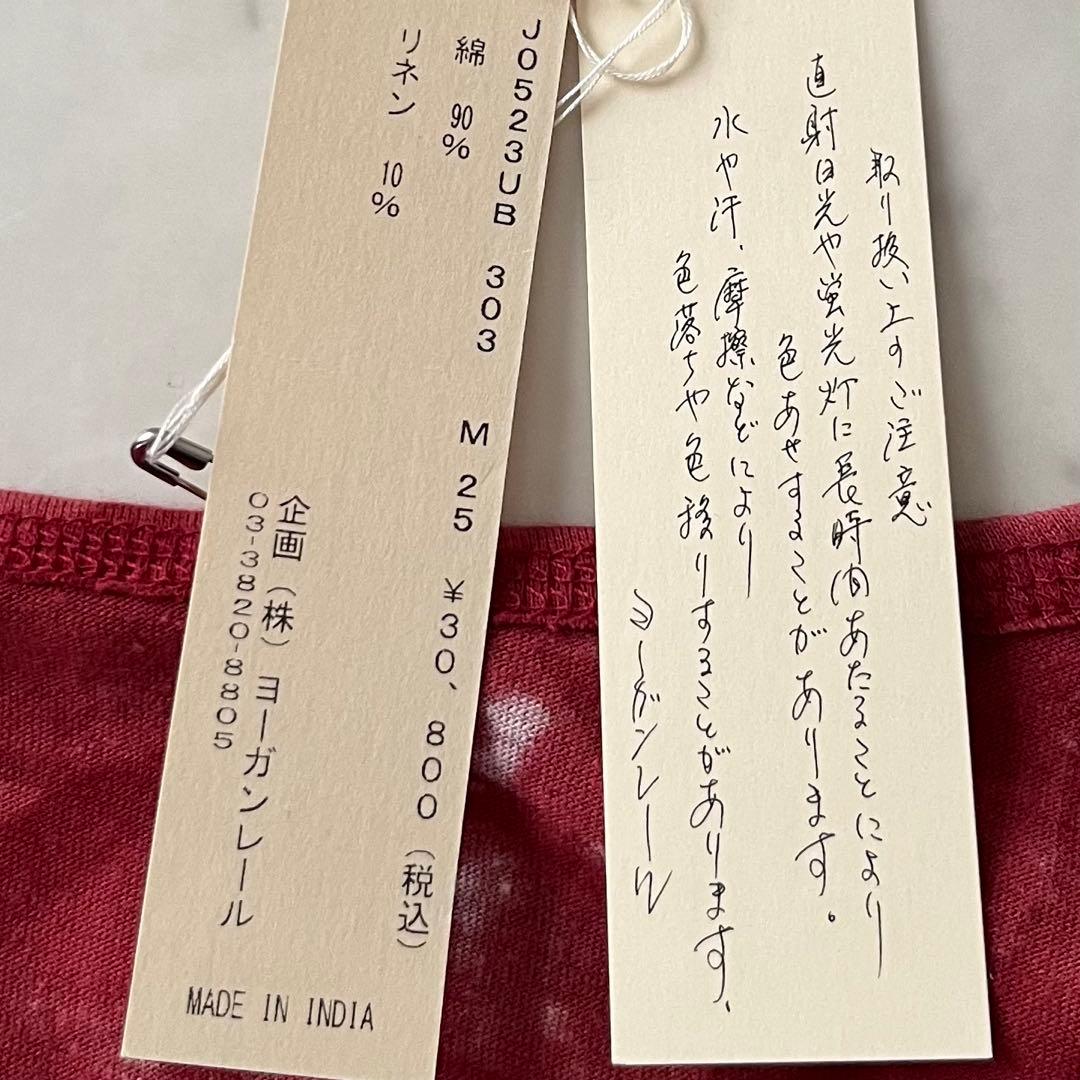 J0523UB 303 M 25 ¥30、800（税込）
綿 90%
リネン 10%
企画（株）ヨーガンレール
03-3820-8805
MADE IN INDIA
取り扱い上のご注意
直射日光や蛍光灯に長時間あたることにより
色あせすることがあります。
水や汗、摩擦などにより
色落ちや色移りすることがあります、
ヨーガンレール